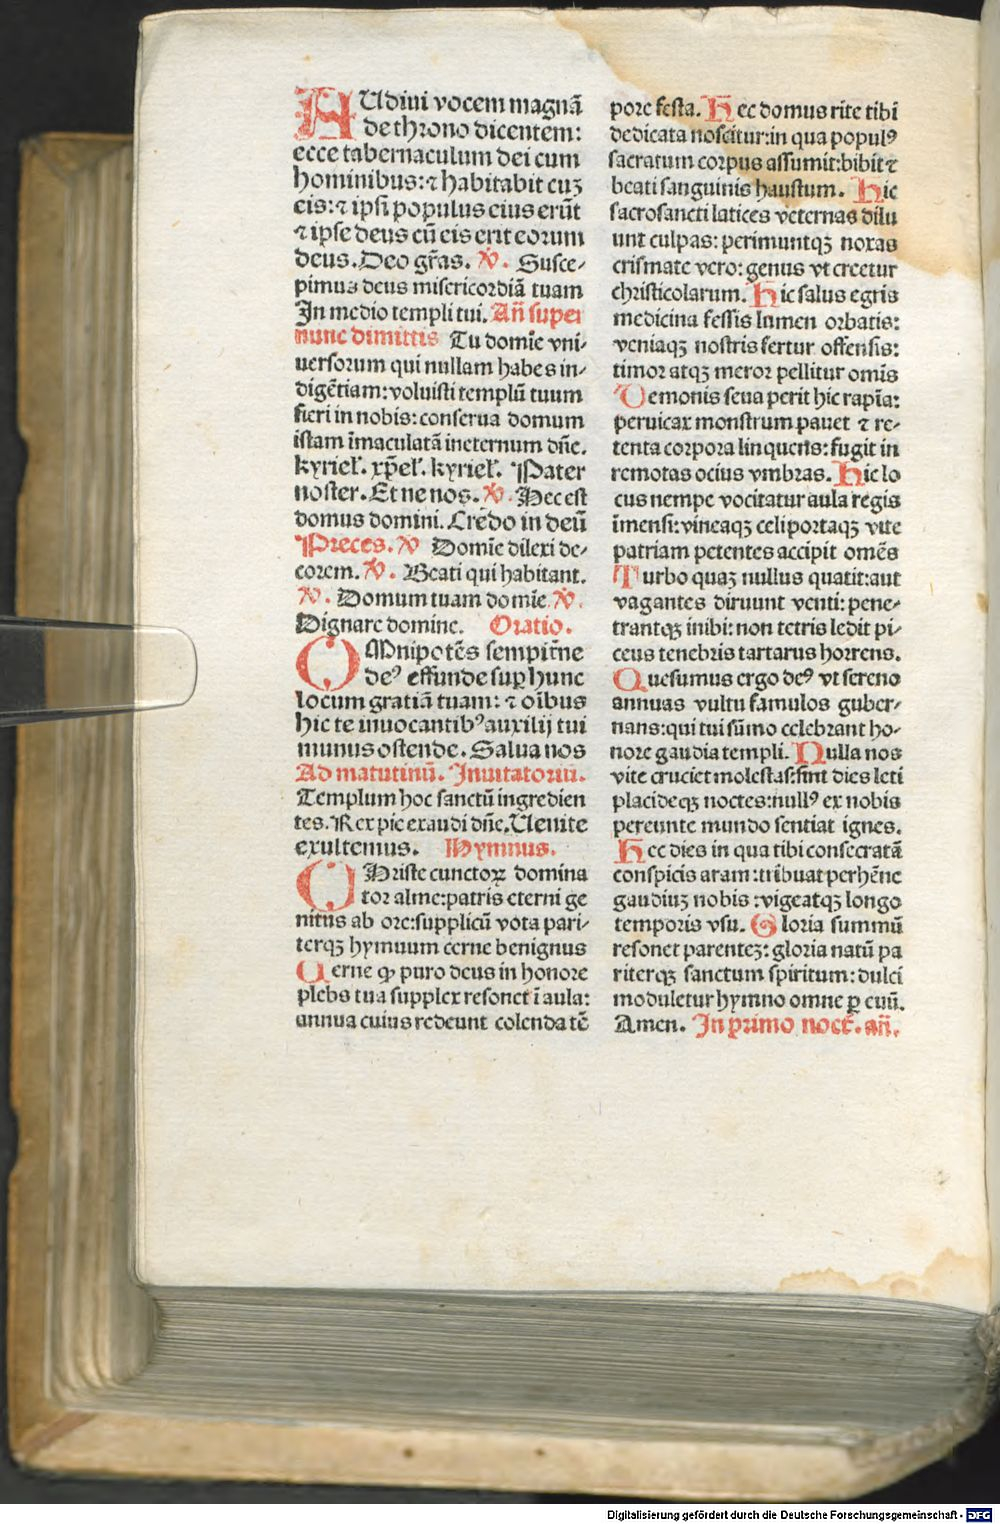 AUdiui vocem magnā
de throno dicentem:
ecce tabernaculum dei cum
hominibus: ⁊ habitabit cuȝ
eis: ⁊ ipsi populus eius erūt
⁊ ipse deus cū eis erit eorum
deus. Deo gr̄as. ℣. Susce-
pimus deus misericordiā tuam
In medio templi tui. Añ super
nunc dimittis Tu domīe vni-
uersorum qui nullam habes in-
digētiam: voluisti templū tuum
fieri in nobis: conserua domum
istam īmaculatā ineternum dñe.
kyriel'. xp̄el'. kyriel'. Pater
noster. Et ne nos. ℣. Hec est
domus domini. Credo in deū
Preces. ℣ Domīe dilexi de-
corem. ℣. Beati qui habitant.
℣. Domum tuam domīe ℣.
Dignare domine. Oratio.
OMnipotēs sempit̄ne
deꝰ effunde suꝑ hunc
locum gratiā tuam: ⁊ oībus
hic te inuocantibꝰ auxilij tui
munus ostende. Salua nos
Ad matutinū. Inuitatoriū.
Templum hoc sanctū ingredien
tes. Rex pie exaudi dñe. Uenite
exultemus. Hymnus.
CHriste cunctoꝝ domina
tor alme: patris eterni ge
nitus ab ore: supplicū vota pari-
terqȝ hymnum cerne benignus
Cerne ꝙ puro deus in honore
plebs tua supplex resonet ī aula:
annua cuius redeunt colenda tē
pore festa. Hec domus rite tibi
dedicata noscitur: in qua populꝰ
sacratum corpus assumit: bibit ⁊
beati sanguinis haustum. Hic
sacrosancti latices veternas dilu
unt culpas: perimuntqȝ noxas
crismate vero: genus vt creetur
christicolarum. Hic salus egris
medicina fessis lumen orbatis:
veniaqȝ nostris fertur offensis:
timor atqȝ meror pellitur omīs
Demonis seua perit hic rapīa:
peruicax monstrum pauet ⁊ re-
tenta corpora linquens: fugit in
remotas ocius vmbras. Hic lo
cus nempe vocitatur aula regis
īmensi: vineaqȝ celi portaqȝ vite
patriam petentes accipit omēs
Turbo quaȝ nullus quatit: aut
vagantes diruunt venti: pene-
trantqȝ inibi: non tetris ledit pi-
ceus tenebris tartarus horrens.
Quesumus ergo deꝰ vt sereno
annuas vultu famulos guber-
nans: qui tui sūmo celebrant ho-
nore gaudia templi. Nulla nos
vite cruciet molestas: sint dies leti
placideqȝ noctes: nullꝰ ex nobis
pereunte mundo sentiat ignes.
Hec dies in qua tibi consecratā
conspicis aram: tribuat perhēne
gaudiuȝ nobis: vigeatqȝ longo
temporis vsu. Gloria summū
resonet parenteȝ: gloria natū pa
riterqȝ sanctum spiritum: dulci
moduletur hymno omne ꝑ euū.
Amen. In primo noct̄. añ.
Digitalisierung gefördert durch die Deutsche Forschungsgemeinschaft - DFG